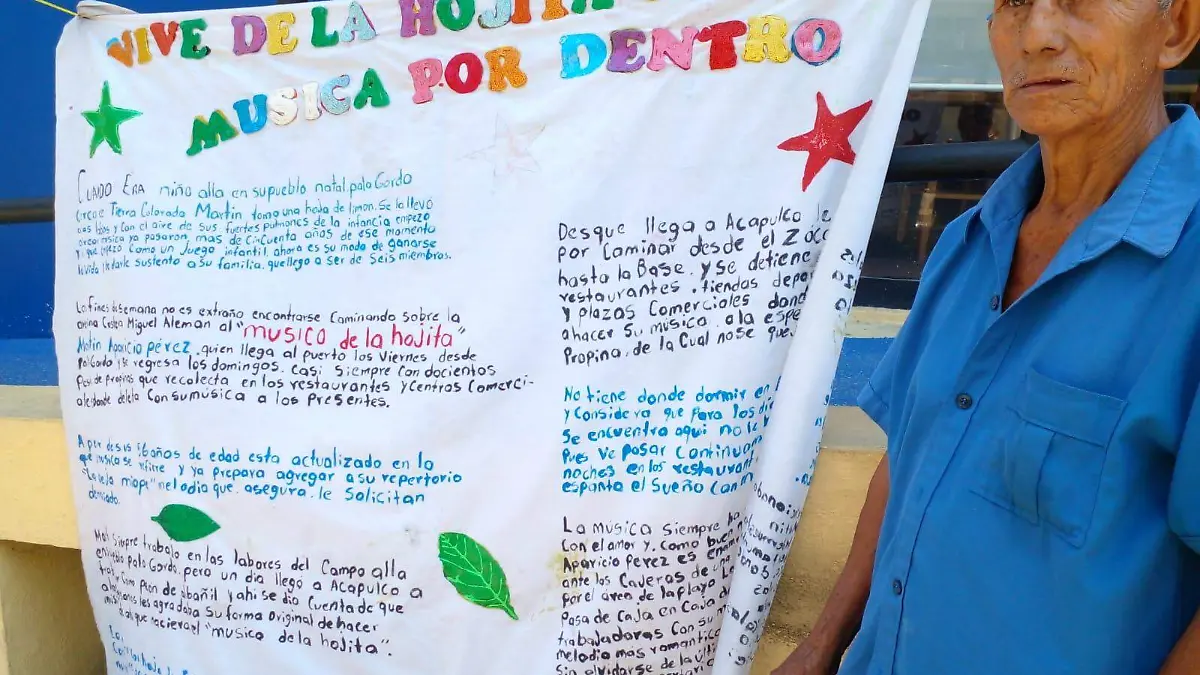 VIVE DE LA HOJITA
MUSICA POR DENTRO
CUANDO ERA niño alla en su pueblo natal, palo Gordo
cerca e Tierra Colorada Martin tomo una hoja de lymon. Se la llevó
labios y con el aire de sus fuertes pulmones de la infancia empezo
musica ya pasaron mas de cincuenta años de ese momento
y que empezo como un Juego infantil, ahora es su modo de ganarse
la vida y darle sustento a su familia. que llego a ser de Seis miembros.
Los fines de semana no es extraño encontrarse Caminando sobre la
Costera Miguel Aleman al "musico de la hojita"
Matin Aparicio pérez, quien llega al puerto los Viernes desde
Palo Gordo y se regresa los domingos. Casi siempre con docientos
Pesos de propinas que recolecta en los restaurantes y Centros Comerci-
ales donde deleita Con su música a los Presentes.
A per de sus 16 años de edad esta actualizado en lo
que musica se refiere y ya prepara agregar a su repertorio
"La vieja miope" melodia que, asegura, le Solicitan
demaciado.
Mati Siempre trabajo en las labores del Campo alla
en palo Gordo, pero un dia llegó a Acapulco a
trabajar Como Peon de albañil y ahi se dio Cuenta de que
les agradaba su forma original de hacer
naciera el "musico de la hojita".
Desque llega a Acapulco le
por Caminar desde el Zoca
hasta la Base. y se detiene
restaurantes, tiendas depa
y plazas Comerciales dond
a hacer su musica, a la espe
Propina, de la Cual no se que
No tiene donde dormir en
y considera que para los di
Se encuentra aqui no le
Pues ve pasar continuam
noches en los restaurant
espanta el sueño Con m
La musica Siempre ha
Con el amor y. Como buen
Aparicio Perez es enam
ante las Cajeras de un
por el area de la playa La
Pasa de Caja en Caja d
trabajadoras Con su m
melodia mas romantica
Sin olvidarse de la últi